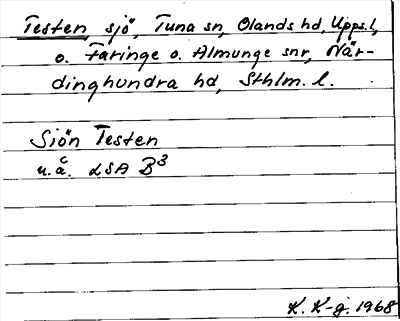 Testen, sjö, Tuna sn, Olands hd, Upps. l,
o. Faringe o. Almunge snr, När-
dinghundra hd, Sthlm. l.
Sjön Testen
u.å. LSA B³
K. K-g. 1968